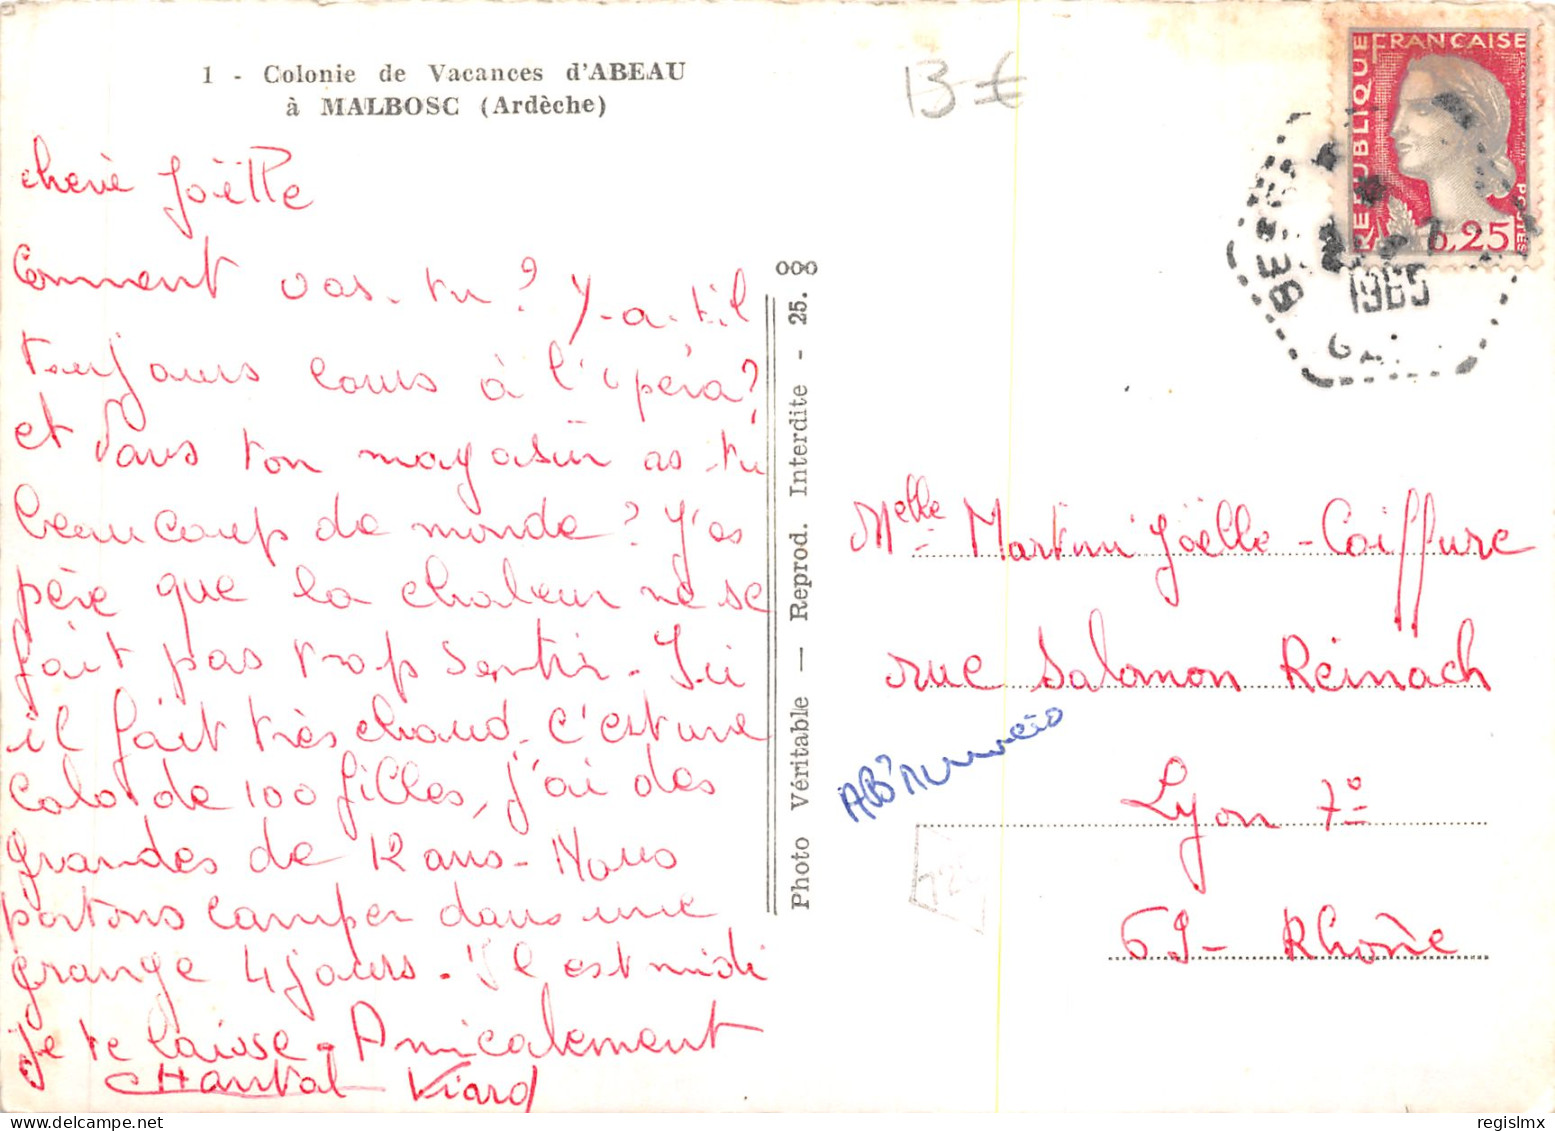 1 - Colonie de Vacances d'ABEAU
à MALBOSC (Ardèche)
13 €
chérie Joëlle
Comment vas-tu ? Y-a-t-il
toujours cours à l'opéra ?
et dans ton magasin as-tu
beaucoup de monde ? J'es
père que la chaleur ne se
fait pas trop sentir - Ici
il fait très chaud - c'est une
colo de 100 filles, j'ai des
grandes de 12 ans - Nous
partons camper dans une
grange 4 jours - Il est midi
je te laisse - Amicalement
Chantal Viard
Photo Véritable — Reprod. Interdite - 25.
REPUBLIQUE FRANÇAISE
POSTES
0,25
1965
Melle Martini Joëlle - Coiffure
rue Salomon Reinach
Lyon 7°
69 - Rhône
regislmx